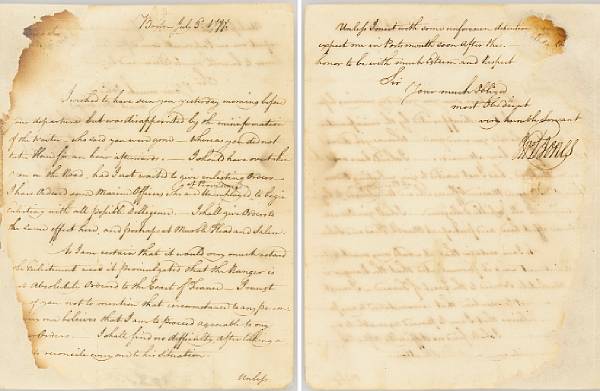 Boston July 5th 1777
I wished to have seen you yesterday morning before
my departure but was disappointed by the misinformation
of the Waiter - who said you were gone - Whereas you did not
set
then for an hour afterwards. - I should have overtaken
you on the Road, had I not waited to give enlisting Orders -
I have Ordered some Marine Officers who are Unemployed to begin
at Providence
enlisting with all possible Dillegence. - I shall give Orders to
the same effect here, and perhaps at Marble Head and Salem.
As I am certain that it would very much retard
the Enlistment was it promulgated that the Ranger is
Absolutely Ordered to the Coast of France - I
you not to mention that circumstance to any person
one believes that I am to proceed agreeable to my
Orders. - I shall find no difficulty After taking
reconcile every one to his Situation.
Unless
Unless I meet with some unforeseen detention
expect me in Portsmouth soon After the
honor to be with much Esteem and Respect
Sir
Your much Obliged
most Obedient
very humble Servant
Jones